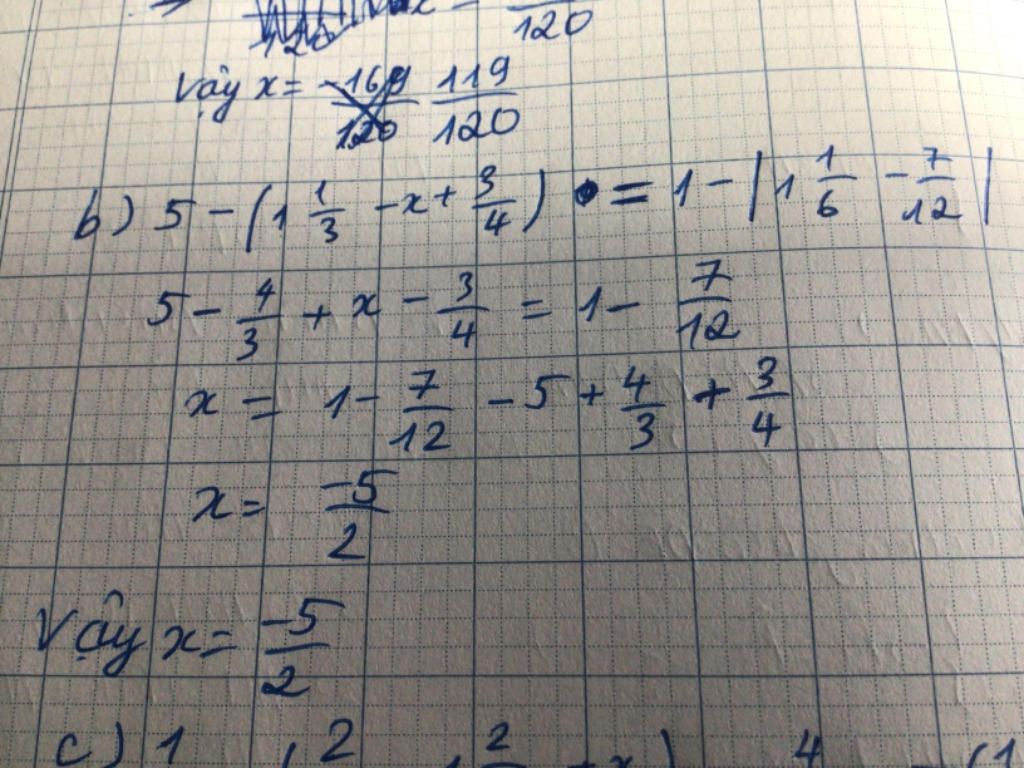 120
Vậy x = -169/120 119/120
b) 5 - (1 1/3 - x + 3/4) = 1 - |1 1/6 - 7/12|
5 - 4/3 + x - 3/4 = 1 - 7/12
x = 1 - 7/12 - 5 + 4/3 + 3/4
x = -5/2
Vậy x = -5/2
c) 1 2 2 x) 4 (1